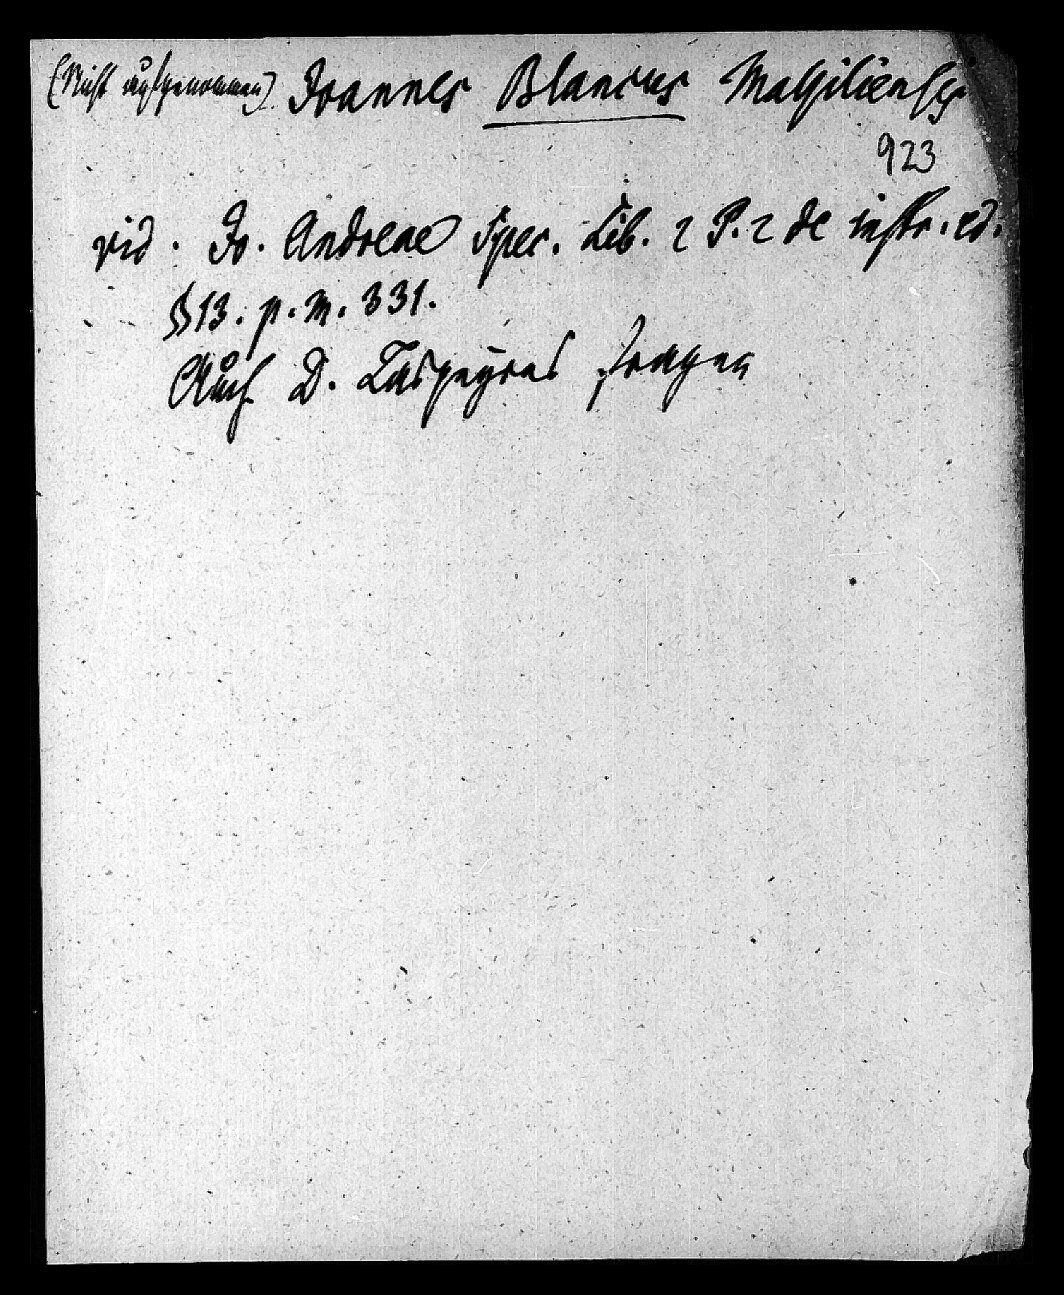 (Nicht aufgenommen) Joannes Blancus Massiliensis
923
vid. Jo. Andreae Spec. Lib. 2 P. 2 de instr. ed.
§ 13. p. m. 331.
Auch D. Laspeyres fragen